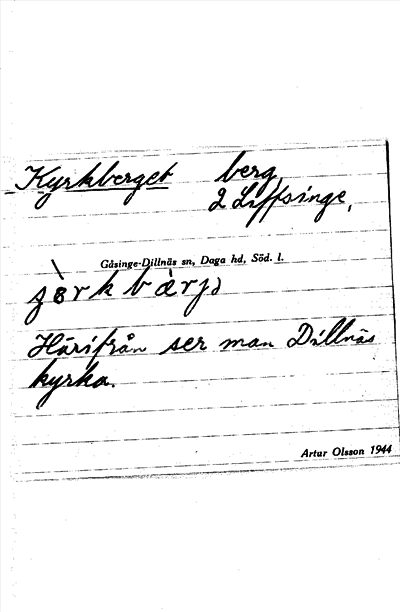 Kyrkberget berg,
2 Liffsinge,
Gåsinge-Dillnäs sn, Daga hd, Söd. l.
Härifrån ser man Dillnäs
kyrka.
Artur Olsson 1944